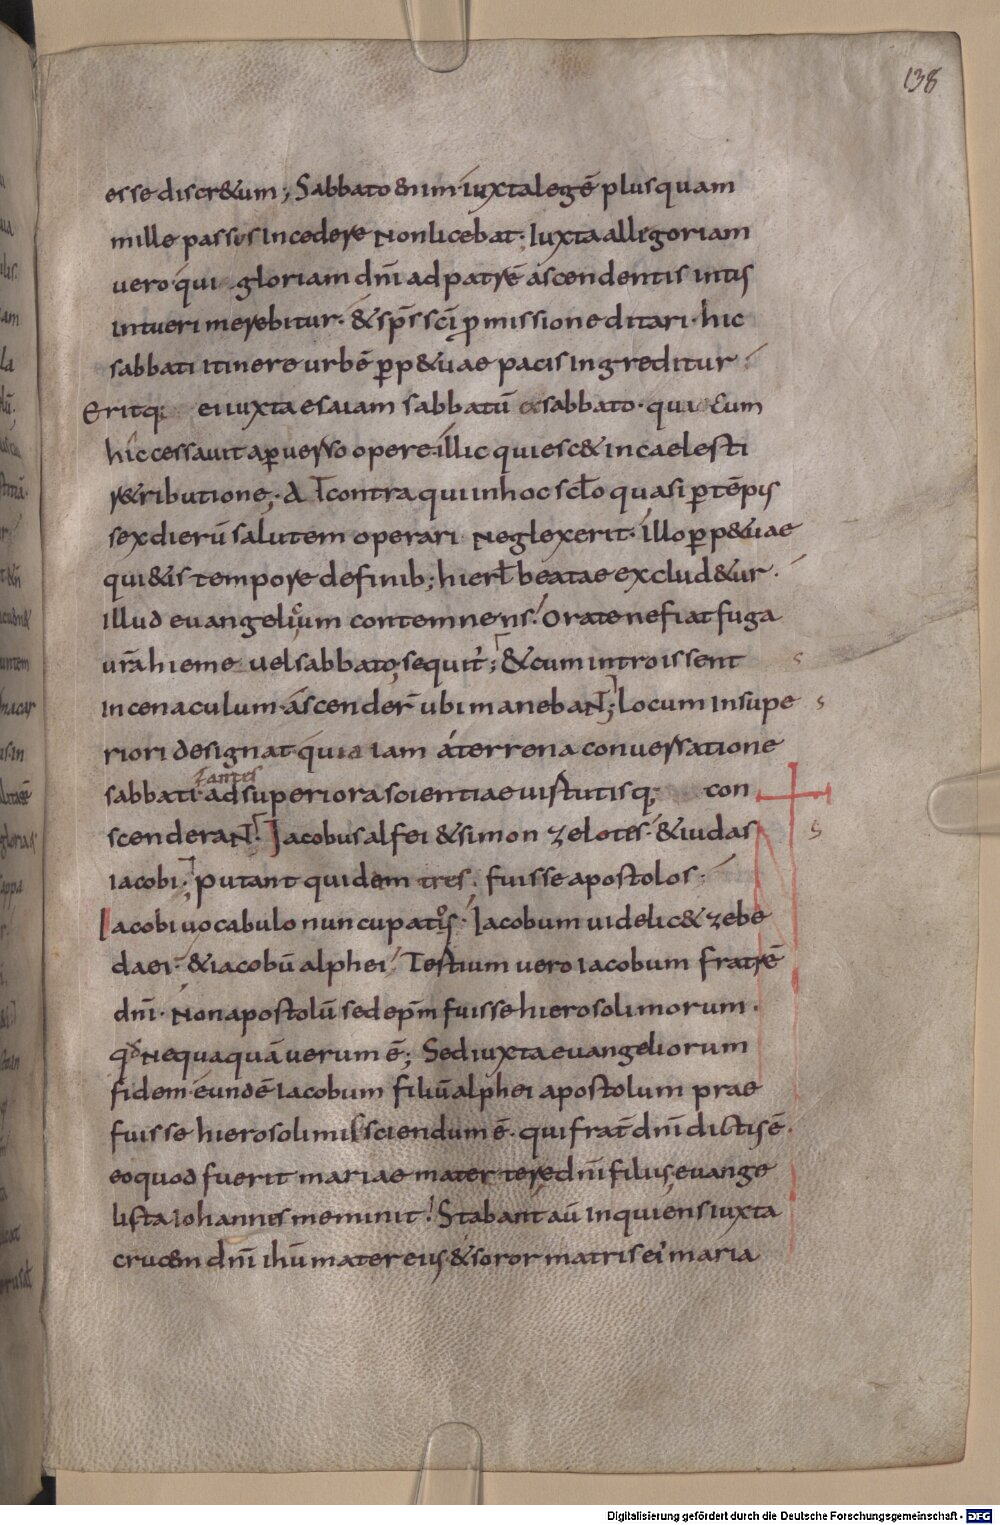 138
esse discr&um; Sabbato enim iuxta legē plus quam
mille passus incedere non licebat. Iuxta allegoriam
vero qui gloriam dn̄i ad patrē ascendentis intus
intueri merebitur. & sp̄s sc̄i ꝓmissione ditari. hic
sabbati itinere urbē ꝑp&uae pacis ingreditur.
Eritq; ei iuxta esaiam sabbatū ex sabbato. qui cum
hic cessavit a ꝑverso opere. illic quiesc& in caelesti
r&ributione; At contra qui in hoc sc̄lo quasi ꝑ tēpus
sex dierū salutem operari neglexerit. illo ꝑp&uae
qui&is tempore de finib; hierl̄ beatae exclud&ur.
Illud evangelium contemnens. Orate ne fiat fuga
ur̄a hieme vel sabbato, sequit̄; & cum introissent
in cenaculum ascender̄ ubi manebaNT; locum in supe
riori designat quia iam a terrena conversatione
sabbati ad superiora scientiae virtutisq; con
scenderaNT. Iacobus alfei & simon zelotes. & iudas
iacobi; Putant quidem tres fuisse apostolos.
Iacobi vocabulo nuncupatos. Iacobum videlic& zebe
daei. & iacobū alphei. Tertium vero iacobum fratrē
dn̄i. Non apostolū sed ep̄m fuisse hierosolimorum.
qd̄ nequaquā verum ē; Sed iuxta evangeliorum
fidem eundē iacobum filiū alphei apostolum prae
fuisse hierosolimis sciendum ē. qui frat̄ dn̄i dictus ē.
eo quod fuerit mariae matertere dn̄i filius, evange
lista iohannes meminit. Stabant aū inquiens iuxta
crucem dn̄i ihū mater eius & soror matris ei' maria
Digitalisierung gefördert durch die Deutsche Forschungsgemeinschaft - DFG